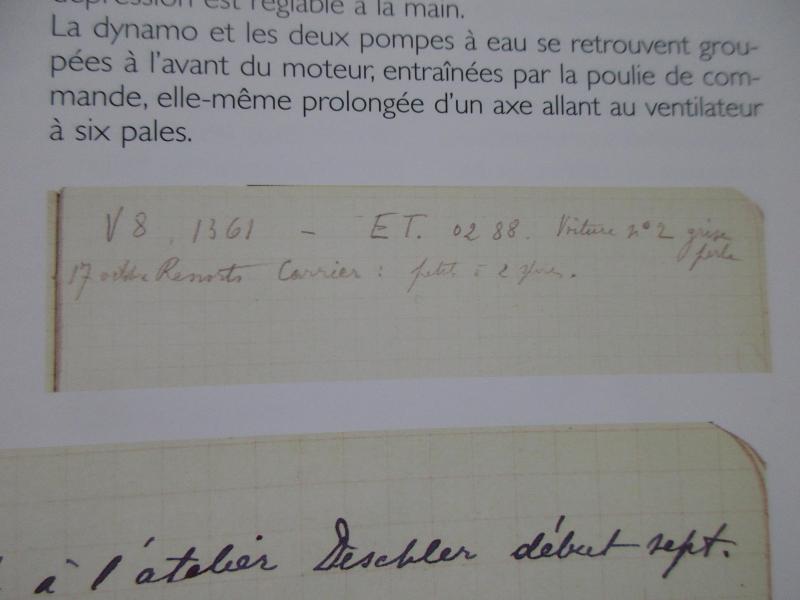 dépression est réglable à la main.
La dynamo et les deux pompes à eau se retrouvent grou-
pées à l'avant du moteur, entraînées par la poulie de com-
mande, elle-même prolongée d'un axe allant au ventilateur
à six pales.
V8. 1361 - ET. 02 88. Voiture n° 2 grise
perle
17 Ressorts Carrier : petit à 2
à l'atelier Deschler début sept.